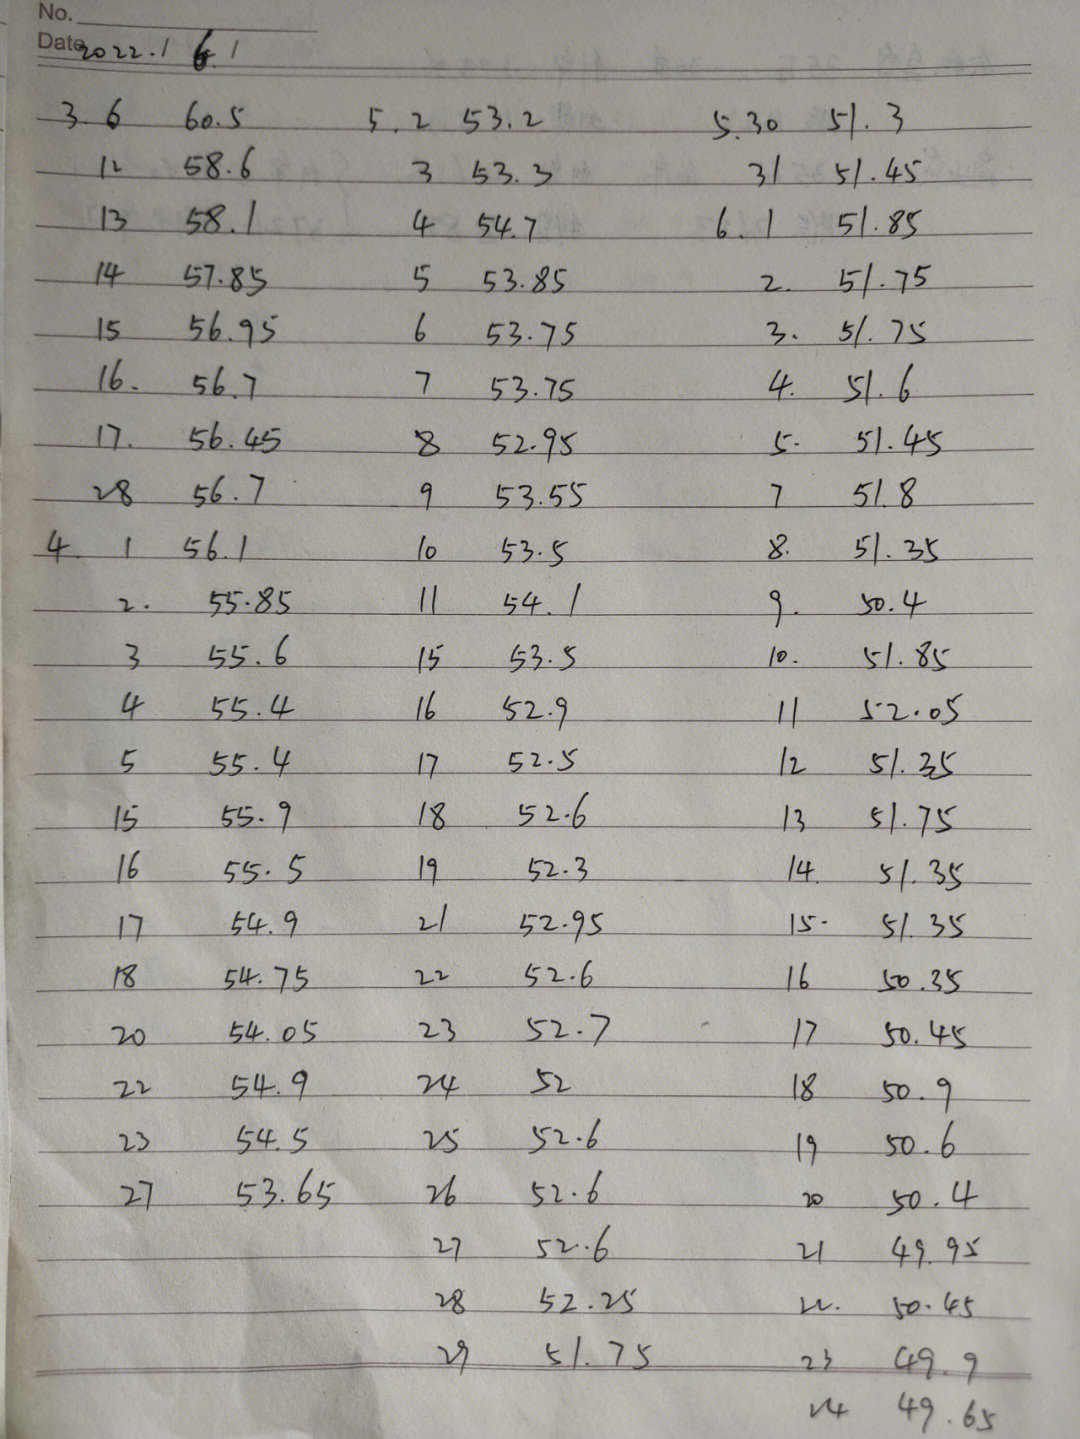 No.
Date 2022.1 6.1
3.6 60.5 5.2 53.2 5.30 51.3
12 58.6 3 53.3 31 51.45
13 58.1 4 54.7 6.1 51.85
14 57.85 5 53.85 2. 51.75
15 56.95 6 53.75 3. 51.75
16. 56.7 7 53.75 4. 51.6
17. 56.45 8 52.95 5. 51.45
28 56.7 9 53.55 7 51.8
4. 1 56.1 10 53.5 8. 51.35
2. 55.85 11 54.1 9. 50.4
3 55.6 15 53.5 10. 51.85
4 55.4 16 52.9 11 52.05
5 55.4 17 52.5 12 51.35
15 55.9 18 52.6 13 51.75
16 55.5 19 52.3 14. 51.35
17 54.9 21 52.95 15. 51.35
18 54.75 22 52.6 16 50.35
20 54.05 23 52.7 17 50.45
22 54.9 24 52 18 50.9
23 54.5 25 52.6 19 50.6
27 53.65 26 52.6 20 50.4
27 52.6 21 49.95
28 52.25 22. 50.45
29 51.75 23 49.9
24 49.65